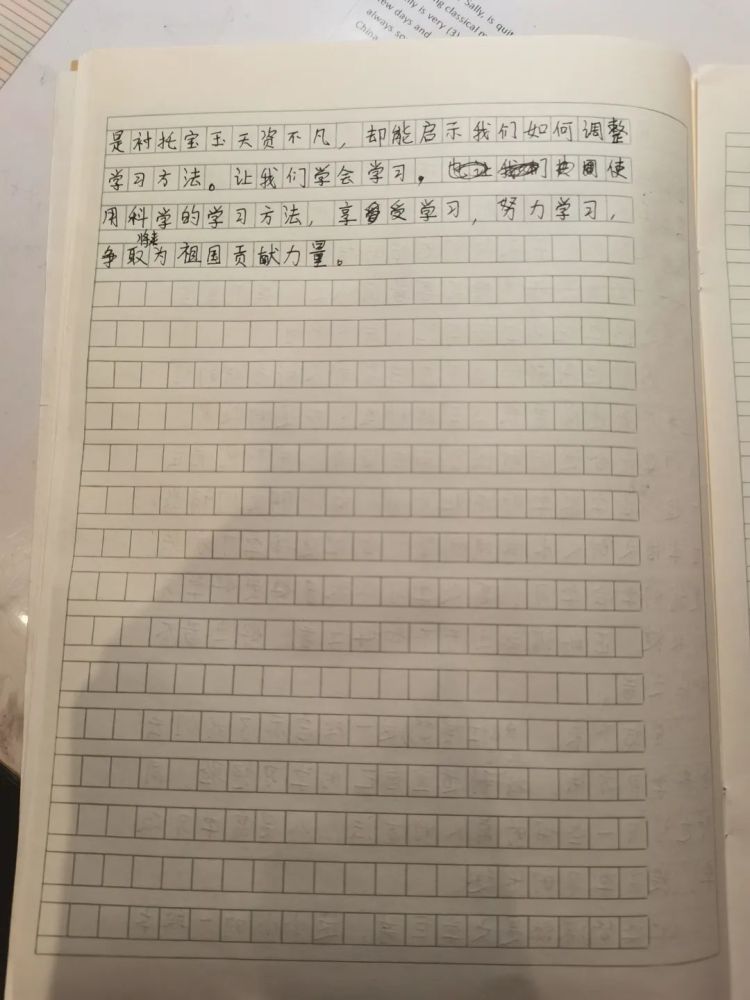 Sally, is quit
ly is very (3)
ng classical m
ew days and
always sp
China
是衬托宝玉天资不凡，却能启示我们如何调整
学习方法。让我们学会学习，共同使
用科学的学习方法，享受学习，努力学习，
将来
争取为祖国贡献力量。